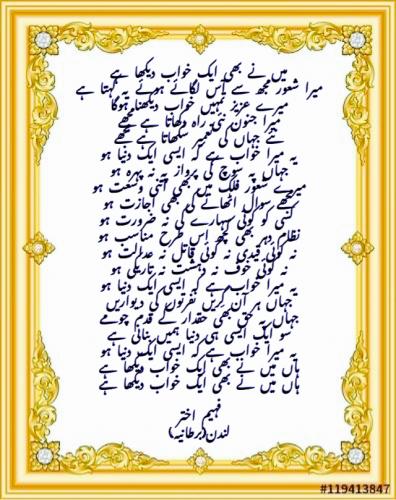 میں نے بھی ایک خواب دیکھا ہے
میرا شعور مجھ سے آس لگائے ہوئے یہ کہتا ہے
میرے عزیز تمہیں خواب دیکھنا ہوگا
میرا جنون نئی راہ دکھاتا ہے مجھے
نئے جہاں کی تعمیر سکھاتا ہے مجھے
یہ میرا خواب ہے کہ ایسی ایک دنیا ہو
جہاں پہ سوچ کی پرواز پہ نہ پہرہ ہو
میرے شعور فلک میں بھی اتنی وسعت ہو
مجھے سوال اٹھانے کی بھی اجازت ہو
کسی کو کوئی سہارے کی نہ ضرورت ہو
نظام دہر بھی کچھ اس طرح مناسب ہو
نہ کوئی قیدی نہ کوئی قاتل نہ عدالت ہو
نہ کوئی خوف نہ دہشت نہ تاریکی ہو
یہ میرا خواب ہے کہ ایسی ایک دنیا ہو
جہاں ہر آن گریں نفرتوں کی دیواریں
جہاں پہ حق بھی حقدار کے قدم چومے
سو ایک ایسی ہی دنیا ہمیں بنانی ہے
یہ میرا خواب ہے کہ ایسی ایک دنیا ہو
ہاں میں نے بھی ایک خواب دیکھا ہے
ہاں میں نے بھی ایک خواب دیکھا ہے
فہیم اختر
لندن(برطانیہ)
#119413847